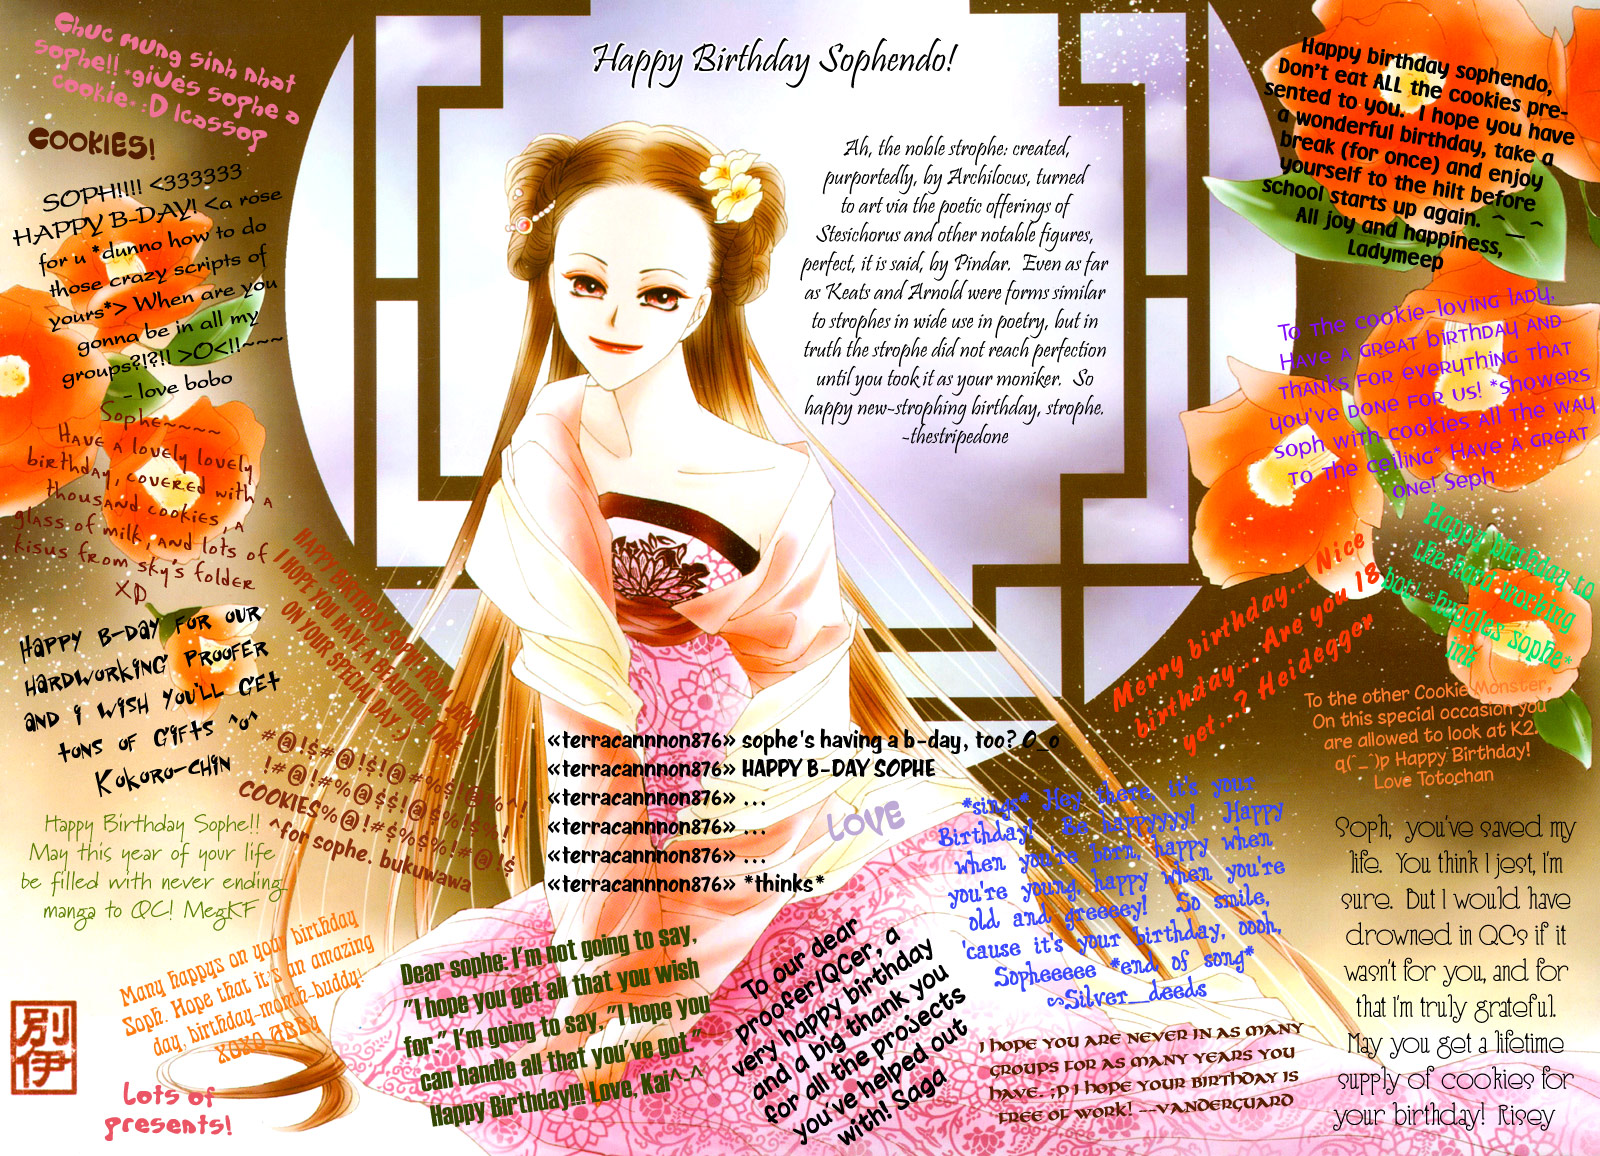 Happy Birthday Sophendo!
Chuc mung sinh nhat
sophe!! *gives sophe a
cookie* :D Icassop
COOKIES!
SOPH!!!! <333333
HAPPY B-DAY! <a rose
for u *dunno how to do
those crazy scripts of
yours*> When are you
gonna be in all my
groups?!?!! >O<!!~~~
- love bobo
Sophe~~~~
Have a lovely lovely
birthday, covered with a
thousand cookies, a
glass of milk, and lots of
kisus from sky's folder
XD
Happy B-day for our
hardworking proofer
and i wish you'll get
tons of gifts ^o^
Kokoro-chin
HAPPY BIRTHDAY SOPH FROM JENN
I HOPE YOU HAVE A BEAUTIFUL TIME
ON YOUR SPECIAL DAY :)
#@!$#@!$!@#%$!$@%^!
!#@!#%@$$!@$%!$%!
COOKIES%@!#$%$%!#@!$
^for sophe. bukuwawa
Happy Birthday Sophe!!
May this year of your life
be filled with never ending
manga to QC! MegKF
Many happys on your birthday
Soph. Hope that it's an amazing
day, birthday-month-buddy!
XOXO ABBy
Lots of
presents!
別
伊
Ah, the noble strophe: created,
purportedly, by Archilocus, turned
to art via the poetic offerings of
Stesichorus and other notable figures,
perfect, it is said, by Pindar. Even as far
as Keats and Arnold were forms similar
to strophes in wide use in poetry, but in
truth the strophe did not reach perfection
until you took it as your moniker. So
happy new-strophing birthday, strophe.
~thestripedone
«terracannnon876» sophe's having a b-day, too? O_o
«terracannnon876» HAPPY B-DAY SOPHE
«terracannnon876» ...
«terracannnon876» ...
«terracannnon876» ...
«terracannnon876» *thinks*
LOVE
Dear sophe: I'm not going to say,
"I hope you get all that you wish
for." I'm going to say, "I hope you
can handle all that you've got."
Happy Birthday!!! Love, Kai^-^
To our dear
proofer/QCer, a
very happy birthday
and a big thank you
for all the projects
you've helped out
with! Saga
*sings* Hey there, it's your
Birthday! Be happyyyy! Happy
when you're born, happy when
you're young, happy when you're
old and greeeey! So smile,
'cause it's your birthday, oooh,
Sopheeeee *end of song*
~Silver_deeds
I hope you are never in as many
groups for as many years you
have. ;p i hope your birthday is
free of work! --vanderguard
Happy birthday sophendo,
Don't eat ALL the cookies pre-
sented to you. I hope you have
a wonderful birthday, take a
break (for once) and enjoy
yourself to the hilt before
school starts up again. ^__^
All joy and happiness,
Ladymeep
To the cookie-loving lady,
Have a great birthday and
thanks for everything that
you've done for us! *showers
soph with cookies all the way
to the ceiling* Have a great
one! Seph
Happy birthday to
the hard-working
bot! *huggles sophe*
ink
Merry birthday... Nice
birthday... Are you 18
yet...? Heidegger
To the other Cookie Monster,
On this special occasion you
are allowed to look at K2.
q(^_^)p Happy Birthday!
Love Totochan
Soph, you've saved my
life. You think I jest, I'm
sure. But I would have
drowned in QCs if it
wasn't for you, and for
that I'm truly grateful.
May you get a lifetime
supply of cookies for
your birthday! Risey